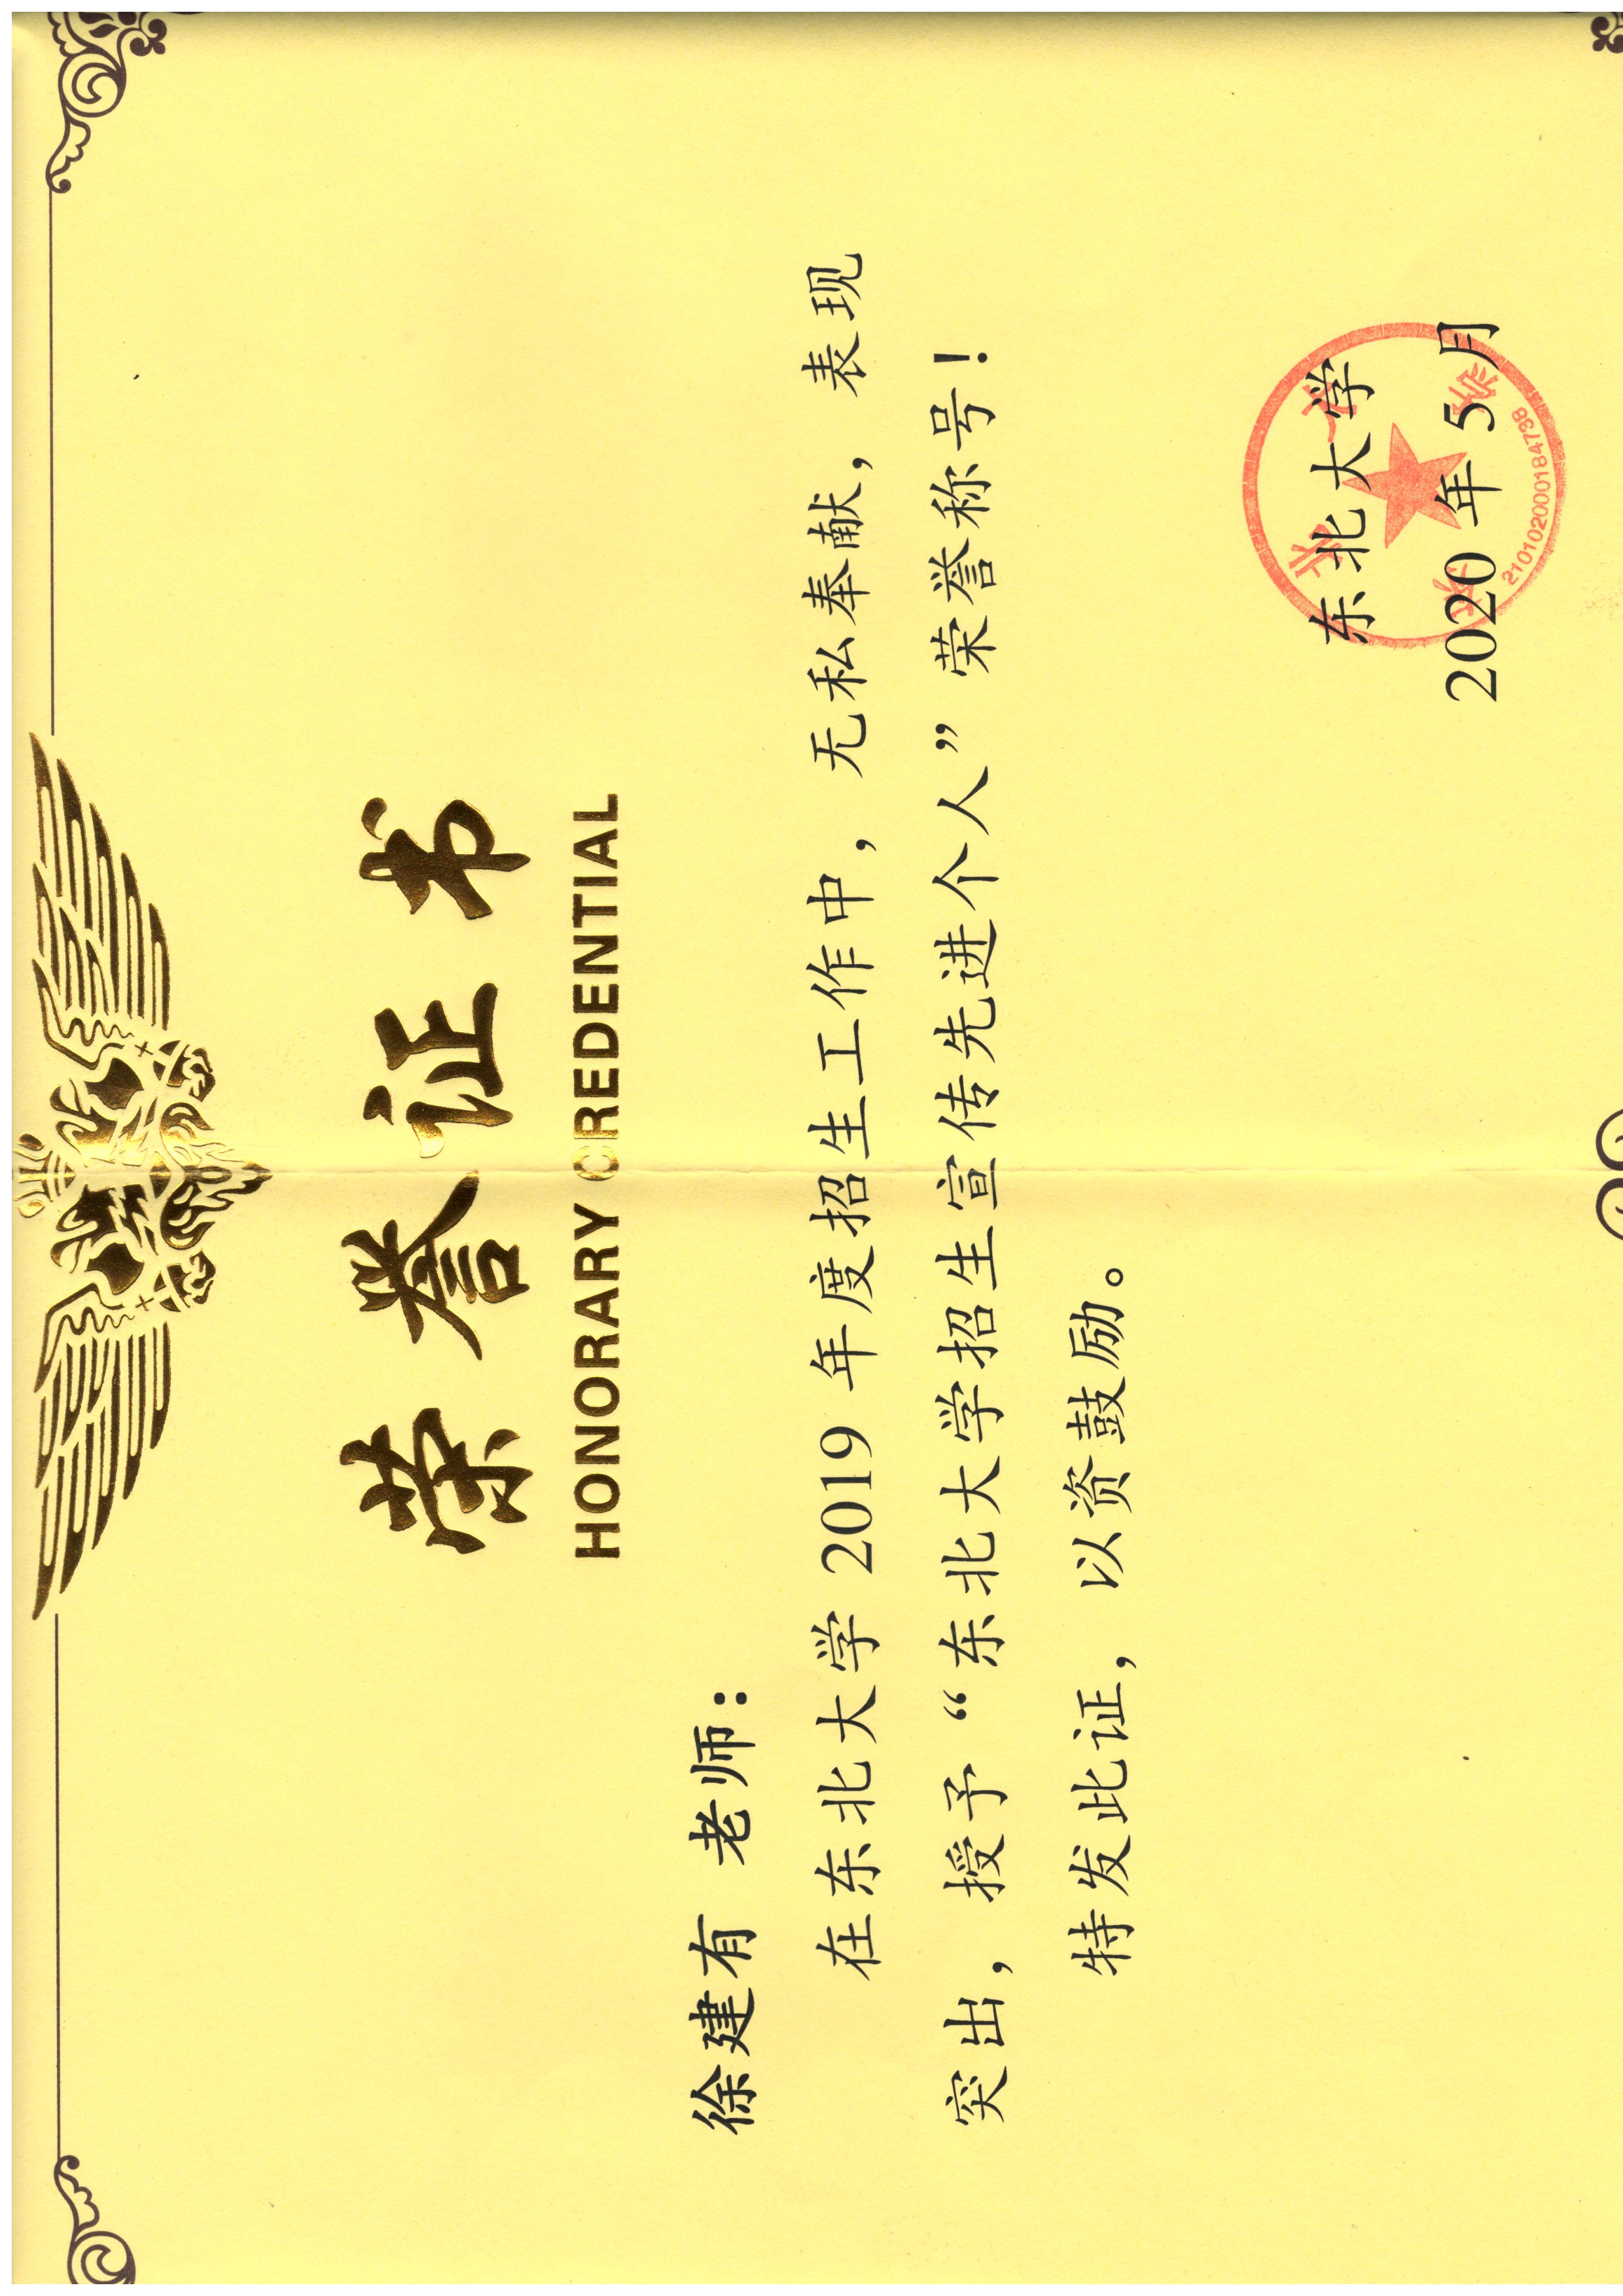 荣誉证书
HONORARY CREDENTIAL
徐建有 老师：
在东北大学 2019 年度招生工作中，无私奉献，表现
突出，授予“东北大学招生宣传先进个人”荣誉称号！
特发此证，以资鼓励。
东北大学
2020 年 5 月
东北大学
210102000184738